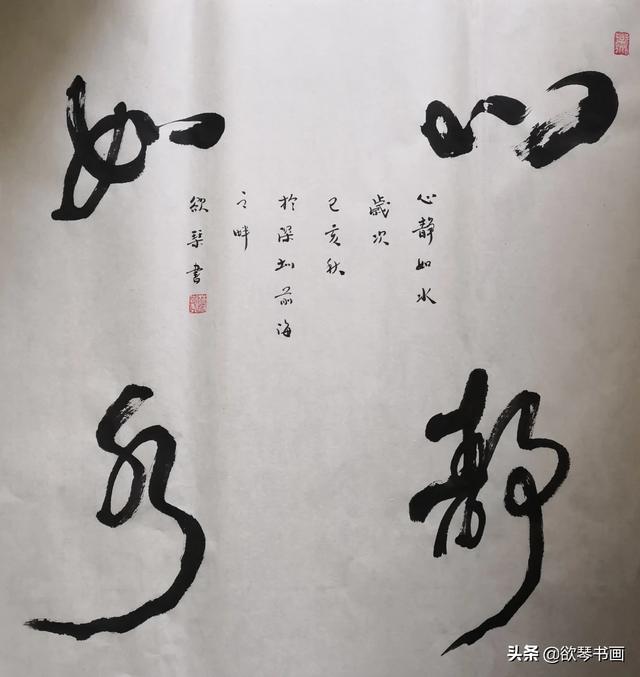 心静
如水
心静如水
歲次
己亥秋
於深圳前海
之畔
欲琴書
头条 @欲琴书画